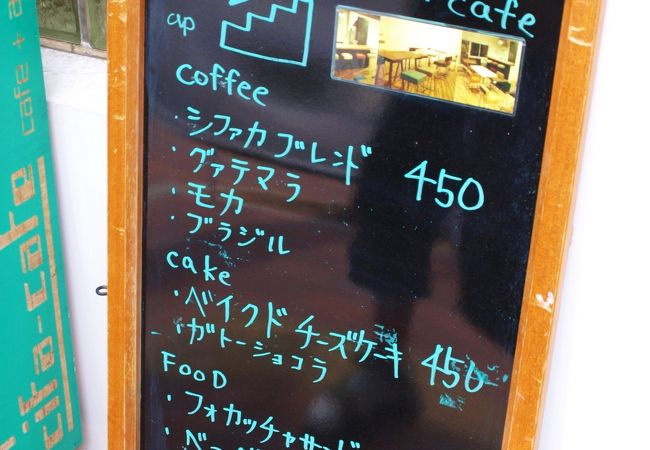 cafe
up
coffee
・シファカブレンド 450
・グァテマラ
・モカ
・ブラジル
cake
・ベイクドチーズケーキ 450
・ガトーショコラ
FOOD
・フォカッチャサンド
cafe + a
cifa-cafe